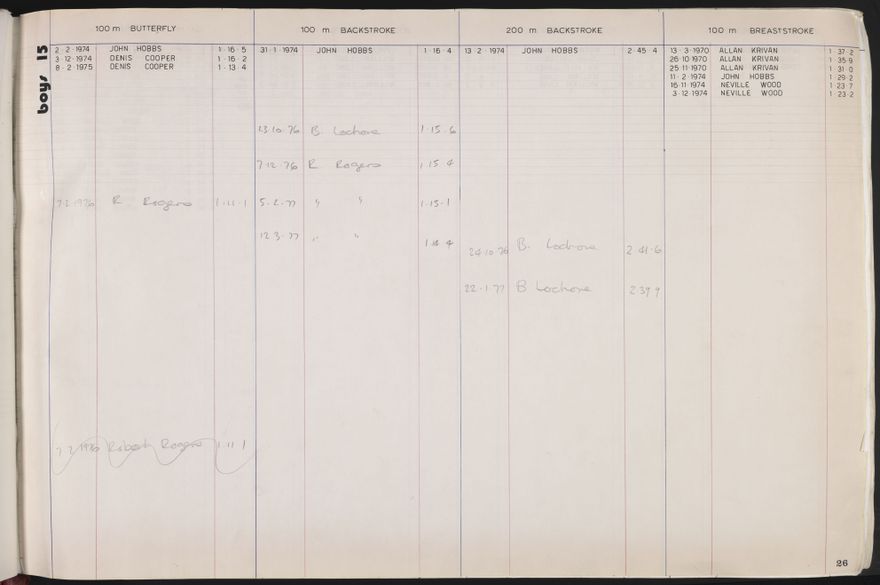 boys 15
100 m BUTTERFLY
2 2·1974 JOHN HOBBS 1·16·5
3 12·1974 DENIS COOPER 1·16·2
8·2·1975 DENIS COOPER 1·13·4
7·2·1976 R Rogers 1·11·1
7·2·1976 Robert Rogers 1·11·1
100 m BACKSTROKE
31·1·1974 JOHN HOBBS 1·16·4
13·10·76 B. 1·15·6
7·12·76 R Rogers 1·15·4
5·2·77 " " 1·15·1
12·3·77 " " 1·14·4
200 m BACKSTROKE
13·2·1974 JOHN HOBBS 2·45·4
24·10·76 B. 2·41·6
22·1·77 B 2·39·9
100 m BREASTSTROKE
13·3·1970 ALLAN KRIVAN 1·37·2
26·10·1970 ALLAN KRIVAN 1·35·9
25·11·1970 ALLAN KRIVAN 1·31·0
11·2·1974 JOHN HOBBS 1·29·2
16·11·1974 NEVILLE WOOD 1·23·7
3·12·1974 NEVILLE WOOD 1·23·2
26